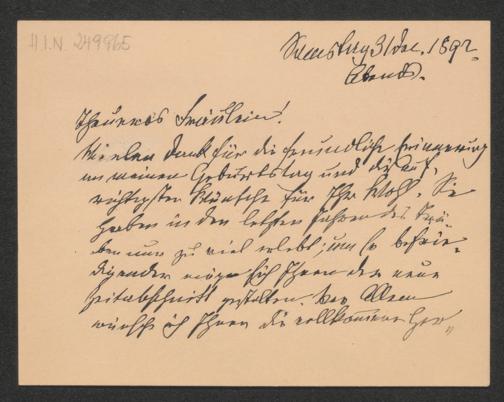 H.I.N. 249965
Samstag 31 Dec. 1892.
Abends.
Theueres Fräulein!
Vielen Dank für die freundliche Erinnerung
an meinen Geburtstag und die auf„
richtigsten Wünsche für Ihr Wohl. Sie
haben in den letzten Jahren des Trü„
ben nur zu viel erlebt; um so befrie„
digender möge sich Ihnen der neue
Zeitabschnitt gestalten. Vor Allem
wünsche ich Ihnen die vollkommene Her„